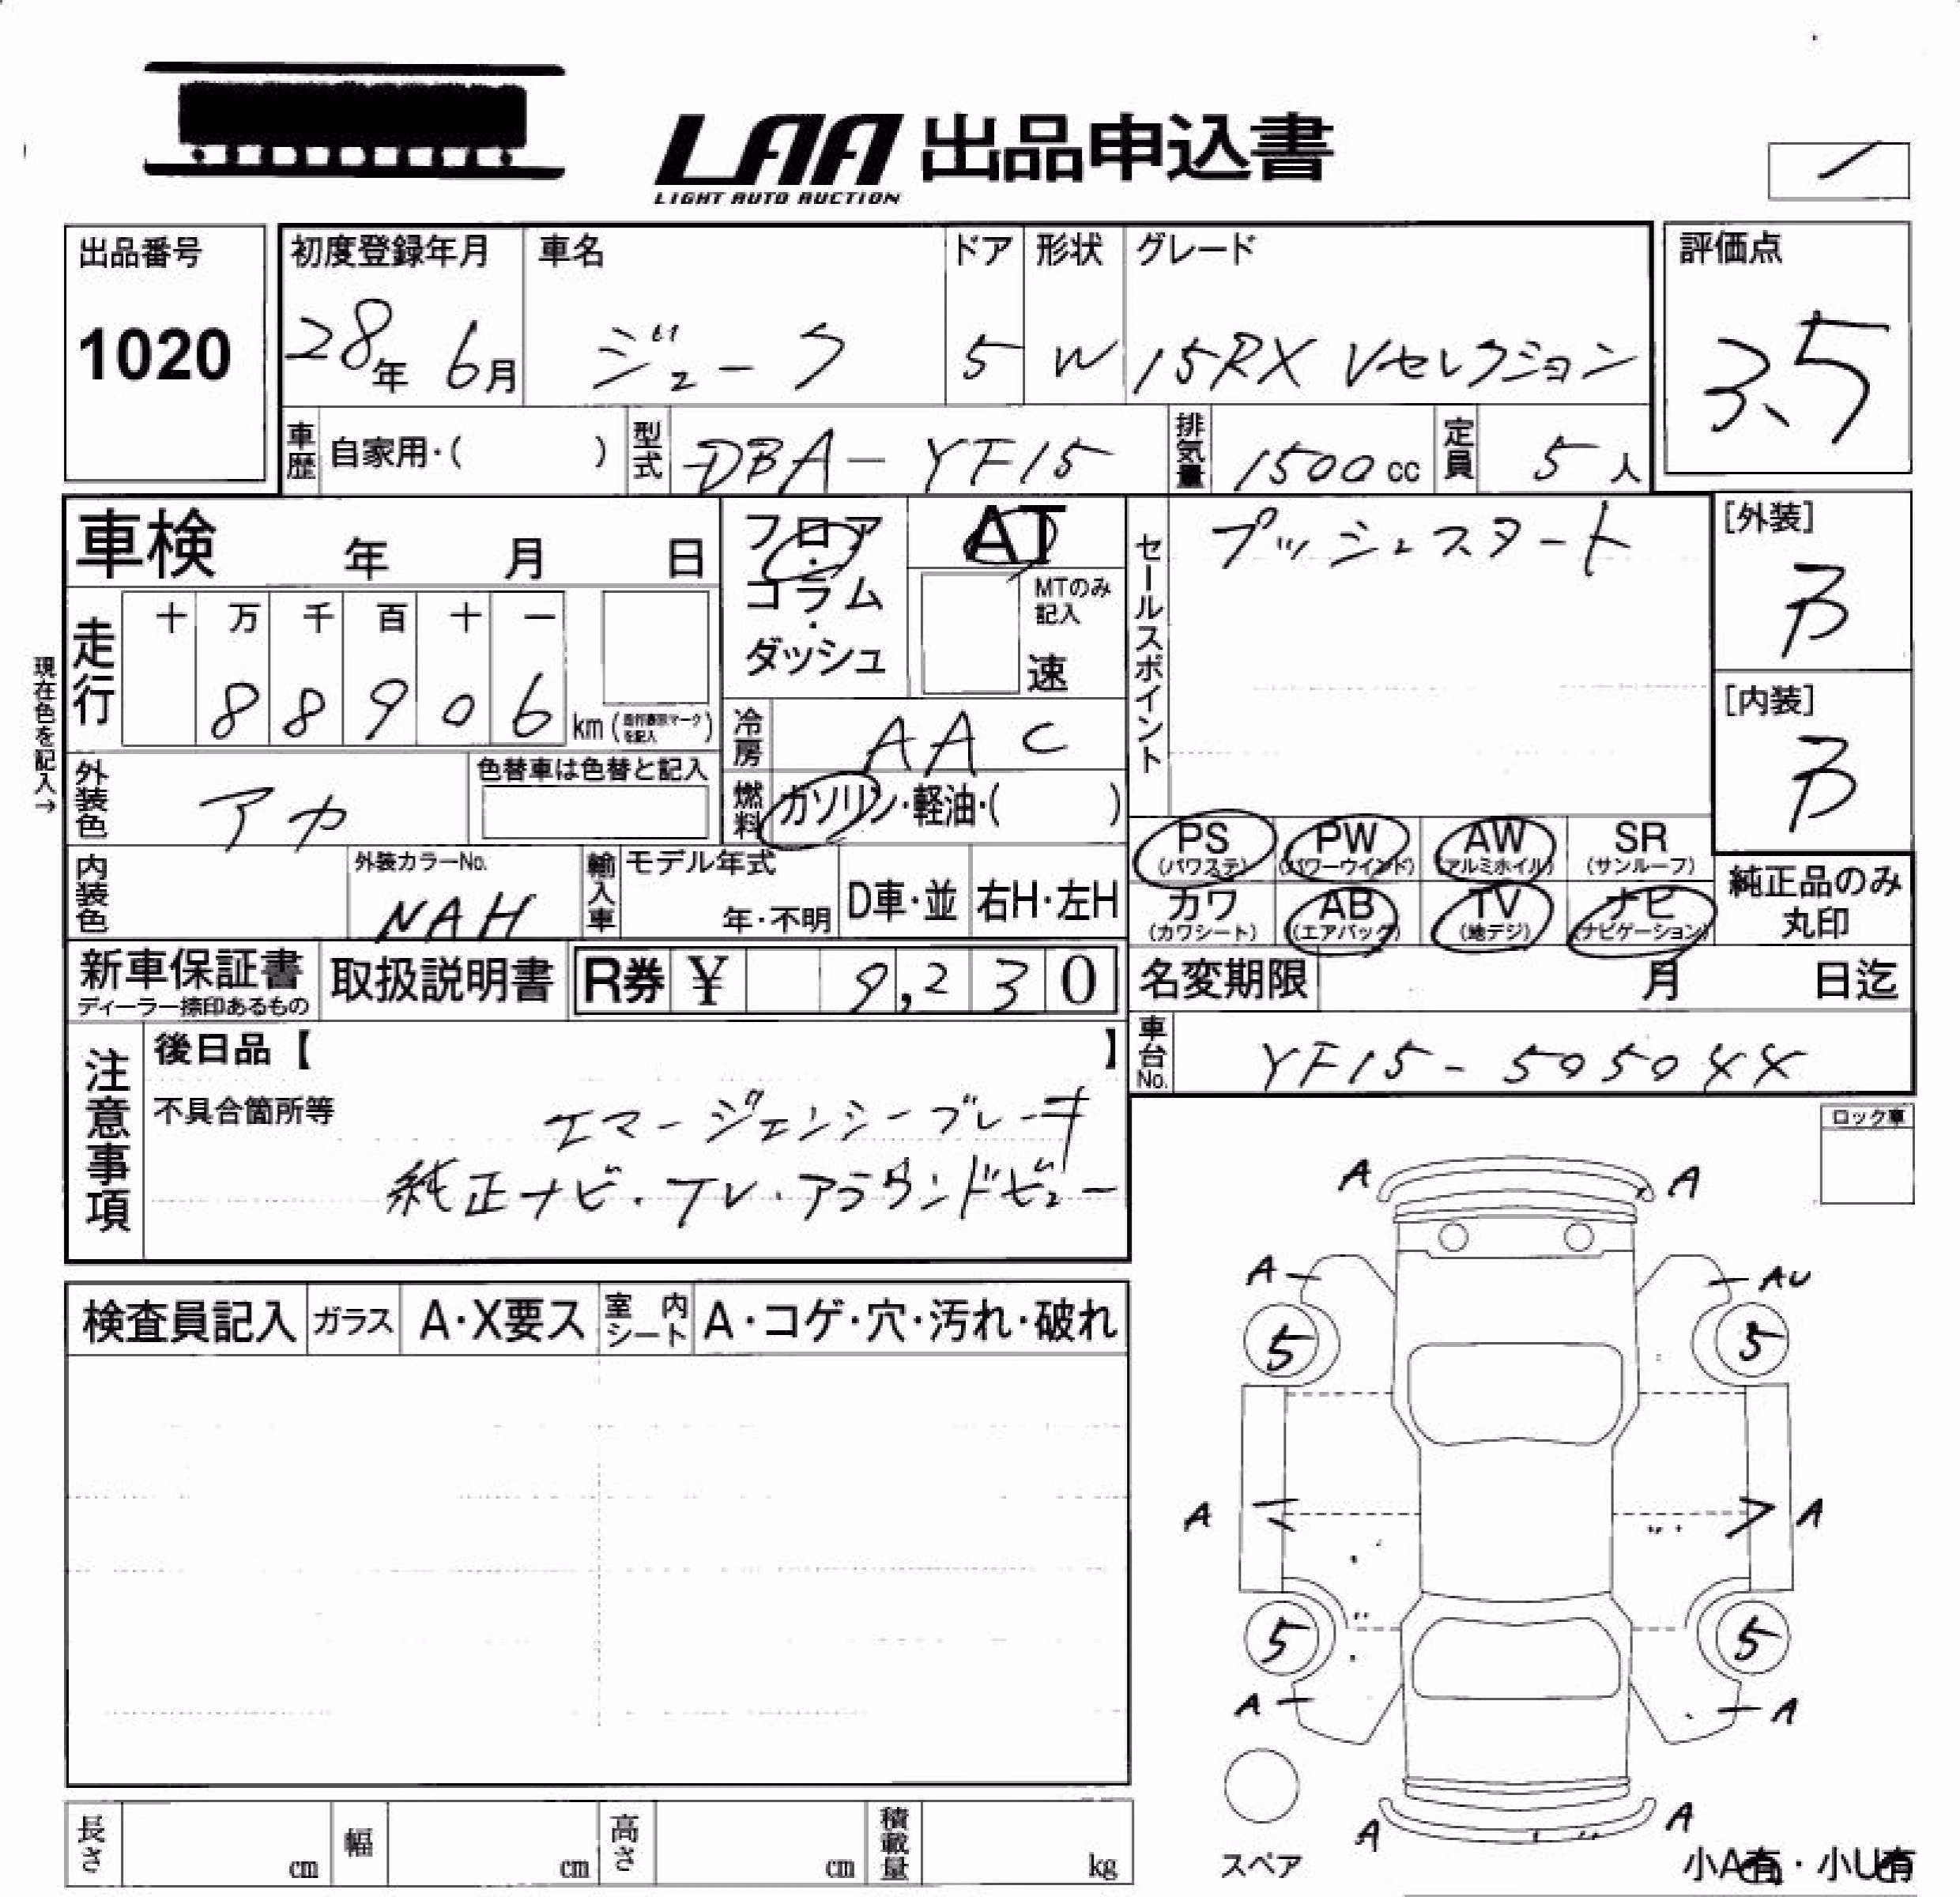 LAA 出品申込書
LIGHT AUTO AUCTION
出品番号
1020
初度登録年月
28年 6月
車名
ジューク
ドア
5
形状
W
グレード
15RX Vセレクション
評価点
3.5
車歴 自家用・( )
型式 DBA-YF15
排気量 1500cc
定員 5人
車検 年 月 日
フロア・コラム・ダッシュ
AT
MTのみ記入
速
セールスポイント
プッシュスタート
[外装]
B
[内装]
B
現在色を記入→
走行
十 万 千 百 十 一
8 8 9 0 6 km
冷房 AAC
外装色 アカ
色替車は色替と記入
燃料 ガソリン・軽油・( )
PS (パワステ)
PW (パワーウインド)
AW (アルミホイル)
SR (サンルーフ)
カワ (カワシート)
AB (エアバック)
TV (地デジ)
ナビ (ナビゲーション)
純正品のみ丸印
内装色
外装カラーNo.
NAH
輸入車
モデル年式
年・不明
D車・並
右H・左H
新車保証書
ディーラー捺印あるもの
取扱説明書
R券 ¥ 9,230
名変期限 月 日迄
車台No. YF15-505044
注意事項
後日品【 】
不具合箇所等
エマージェンシーブレーキ
純正ナビ・TV・アラウンドビュー
ロック車
A A
A AU
5 5
A A
5 5
A A
A A
スペア
小A有・小U有
検査員記入
ガラス A・X要ス
室内シート A・コゲ・穴・汚れ・破れ
長さ cm
幅 cm
高さ cm
積載量 kg